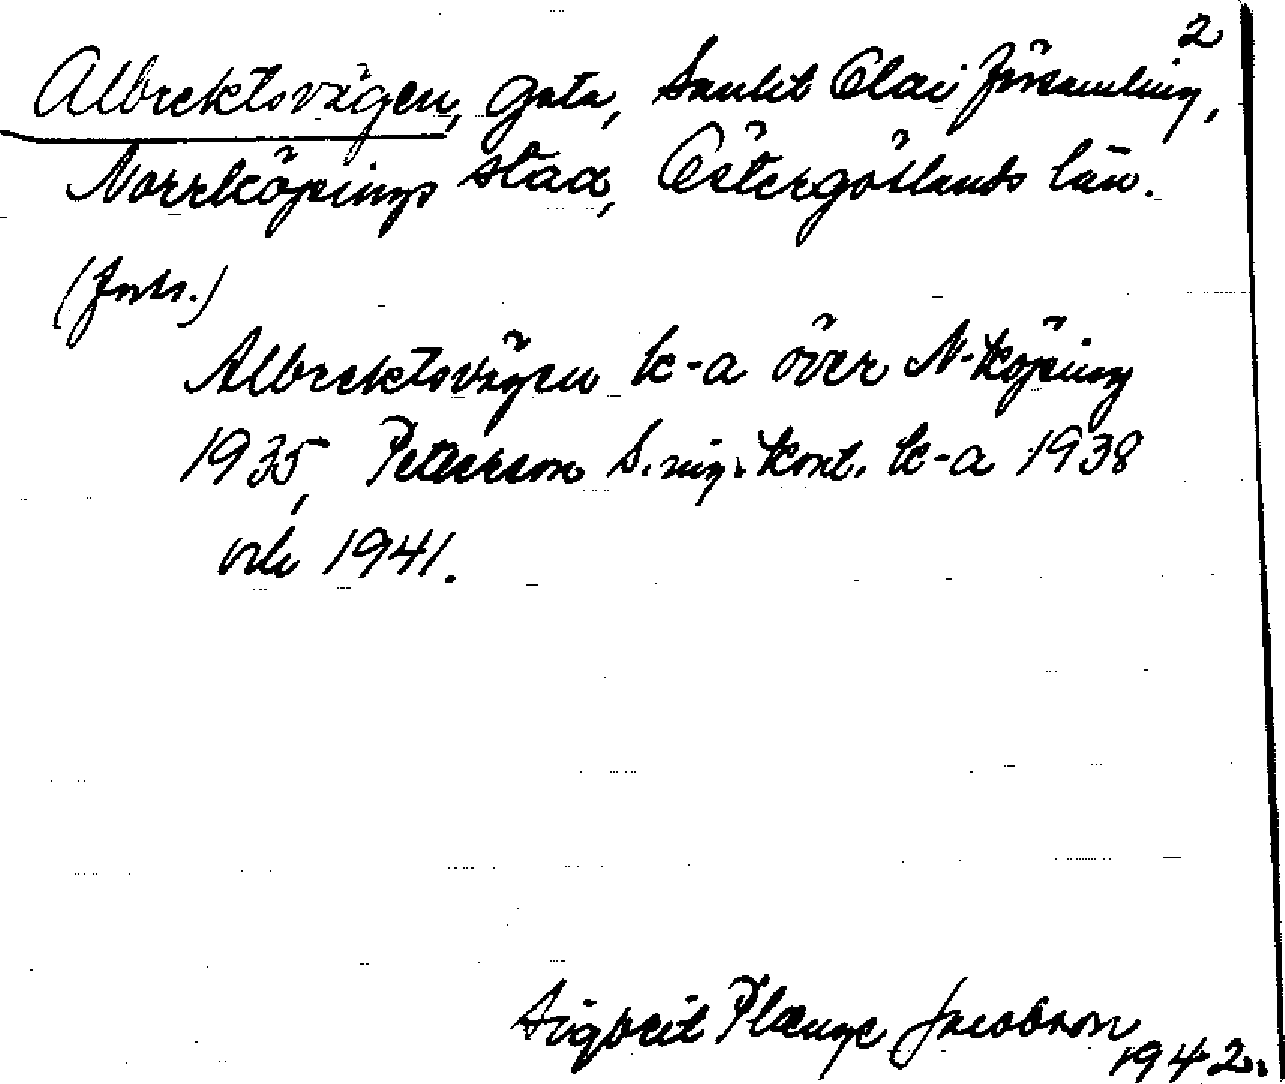 2
Albrektsvägen, gata, Sankt Olai församling,
Norrköpings stad, Östergötlands län.
(forts.)
Albrektsvägen k-a över N-köping
1935, Peterson S. ing. kont. k-a 1938
och 1941.
Sigbrit Plænge Jacobson
1942.